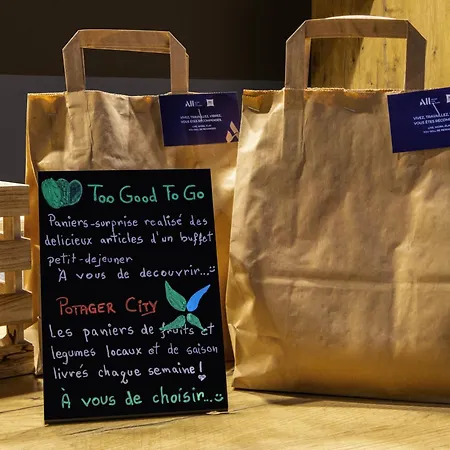 All
VIVEZ, TRAVAILLEZ, VIBREZ,
VOUS ÊTES RÉCOMPENSÉS.
All
VIVEZ, TRAVAILLEZ, VIBREZ,
VOUS ÊTES RÉCOMPENSÉS.
Too Good To Go
Paniers-surprise realisé des
delicieux articles d'un buffet
petit-dejeuner
À vous de decouvrir...
Potager City
Les paniers de fruits et
legumes locaux et de saison
livrés chaque semaine!
À vous de choisir...